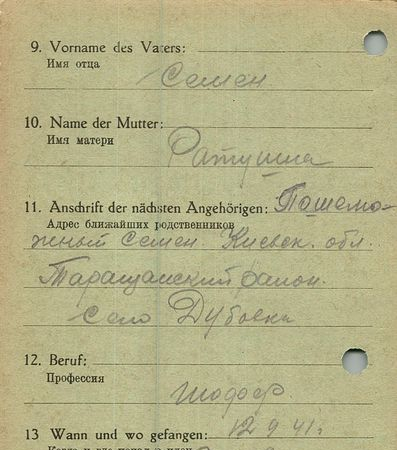 9. Vorname des Vaters:
Имя отца
Семен
10. Name der Mutter:
Имя матери
Ратушна
11. Anschrift der nächsten Angehörigen:
Адрес ближайших родственников
Семен. Киевск. обл.
Таращанский район.
Село Дубовка
12. Beruf:
Профессия
шофер.
13 Wann und wo gefangen: 12.9.41г